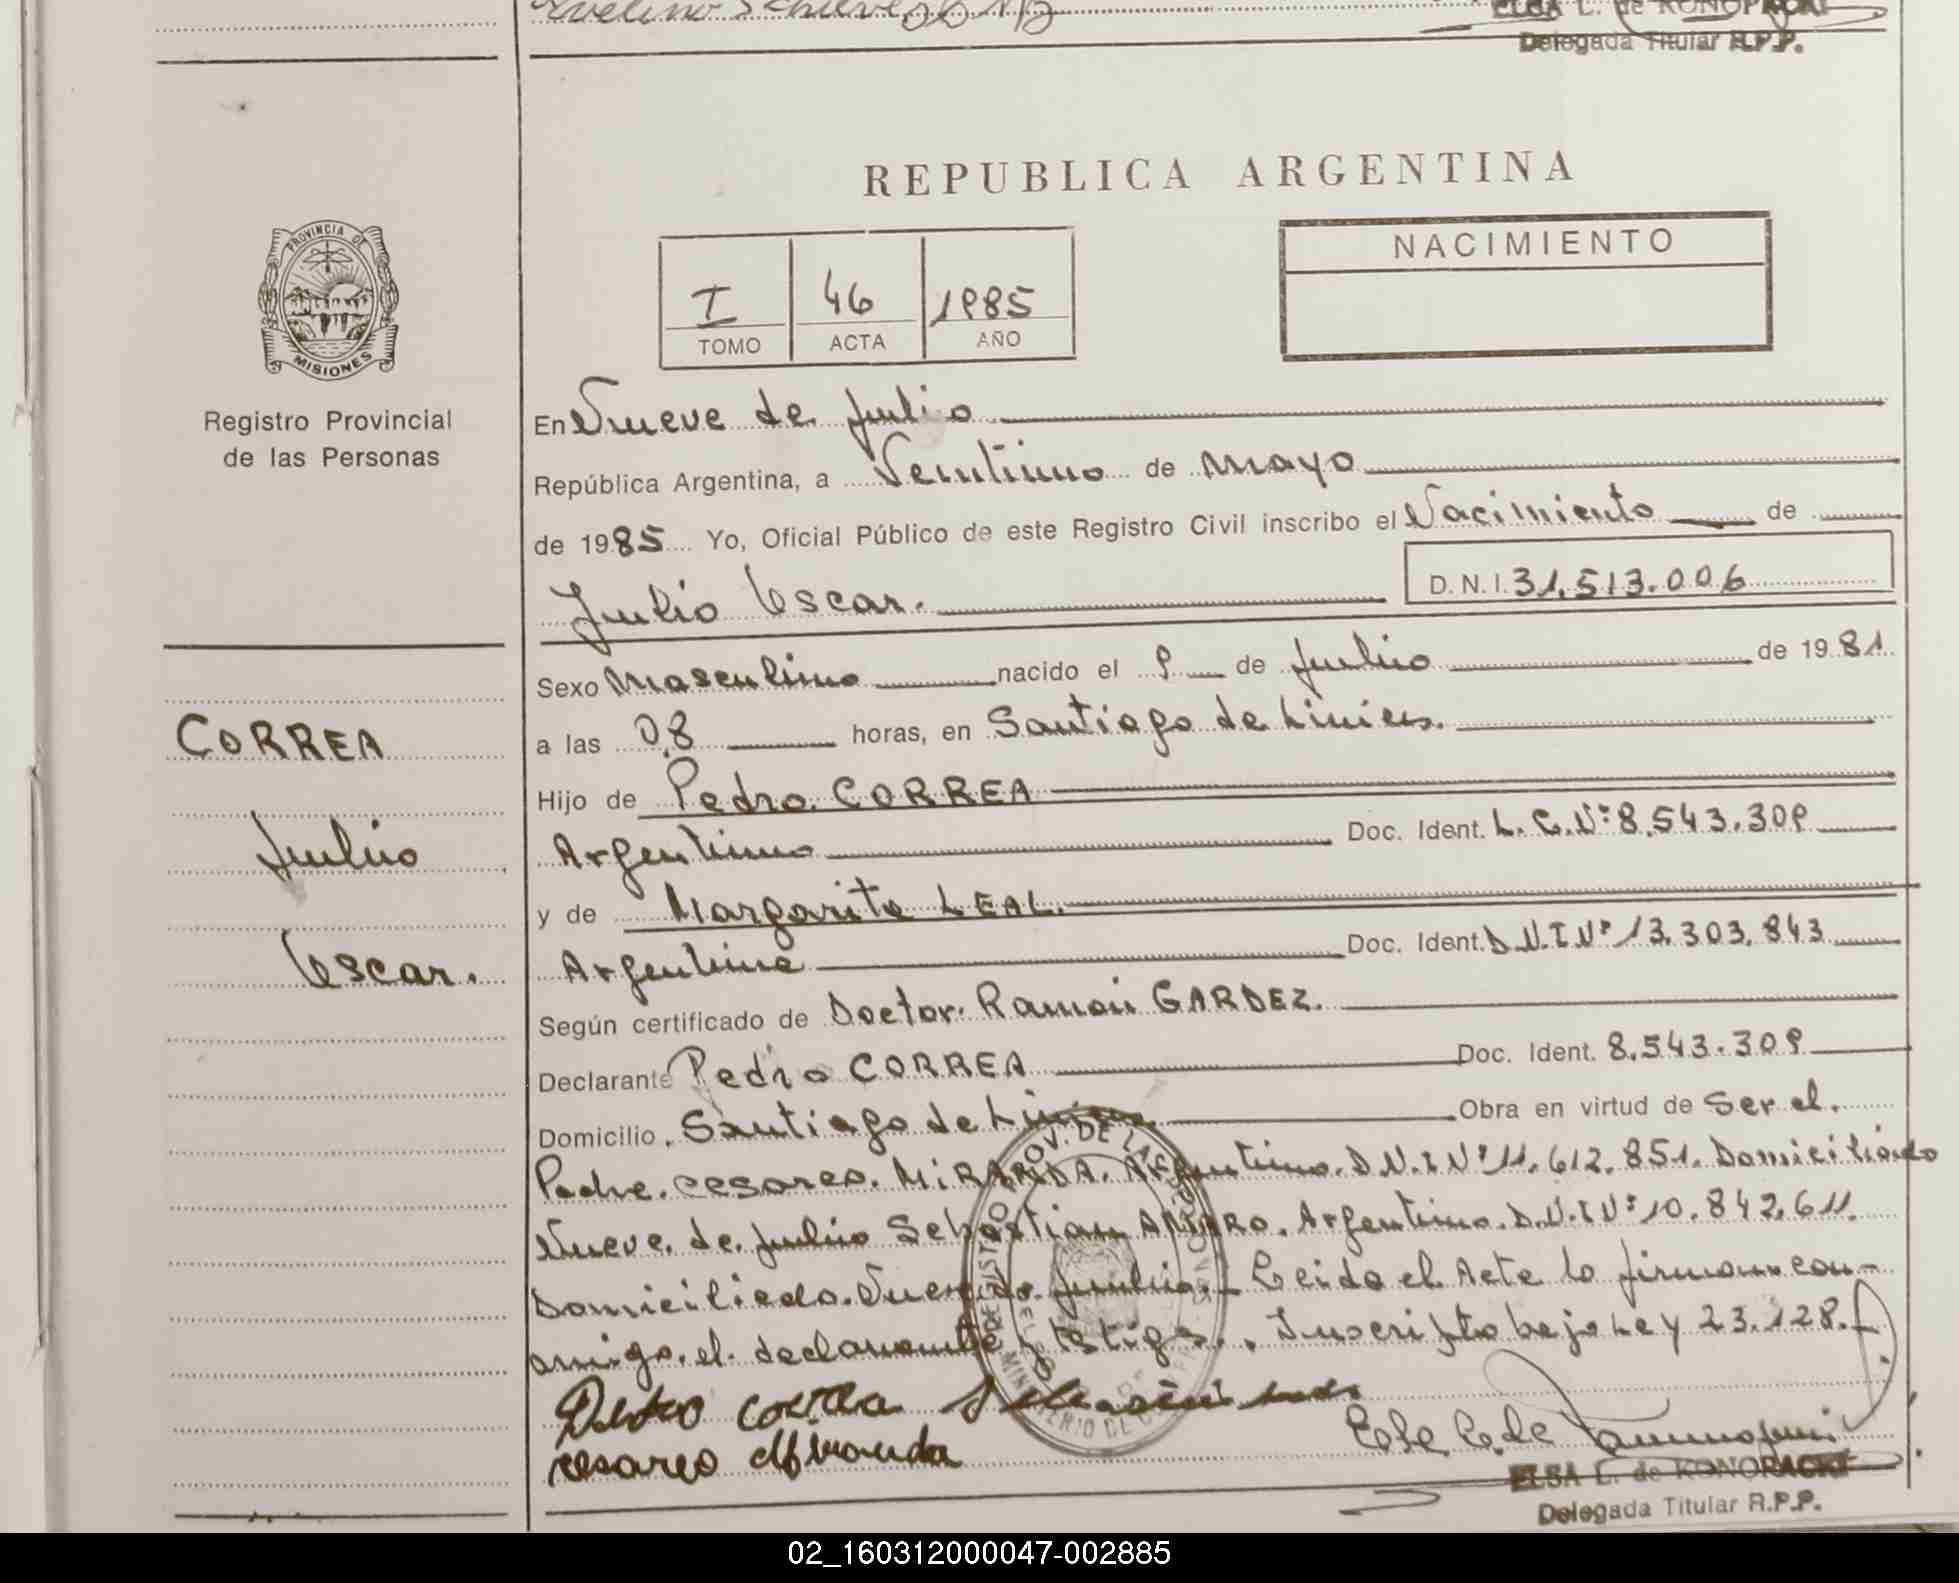 ELSA L. de KONOPACKI
Delegada Titular R.P.P.
REPUBLICA ARGENTINA
PROVINCIA DE
MISIONES
Registro Provincial
de las Personas
I 46 1985
TOMO ACTA AÑO
NACIMIENTO
En Nueve de Julio
República Argentina, a Veintiuno de Mayo
de 1985 Yo, Oficial Público de este Registro Civil inscribo el Nacimiento de
Julio Oscar. D.N.I. 31.513.006
Sexo Masculino nacido el 9 de Julio de 1981
a las 08 horas, en Santiago de Liniers.
Hijo de Pedro CORREA
Argentino Doc. Ident. L.E.Nº 8.543.309
y de Margarita LEAL.
Argentina Doc. Ident. D.N.I Nº 13.303.843
Según certificado de Doctor. Ramón GARDEZ.
Declarante Pedro CORREA Doc. Ident. 8.543.309
Domicilio Santiago de Liniers Obra en virtud de Ser el.
Padre. Cesareo. MIRANDA. Argentino. D.N.I Nº 11.612.851. Domiciliado
Nueve de Julio Sebastian AMARO. Argentino. D.N.I Nº 10.842.611.
Domiciliado. Nueve de Julio. Leida el Acta la firman con-
migo. el declarante y testigos. Inscripto bajo Ley 23.128.
CORREA
Julio
Oscar.
Pedro Correa
Cesareo Miranda
ELSA L. de KONOPACKI
Delegada Titular R.P.P.
02_160312000047-002885